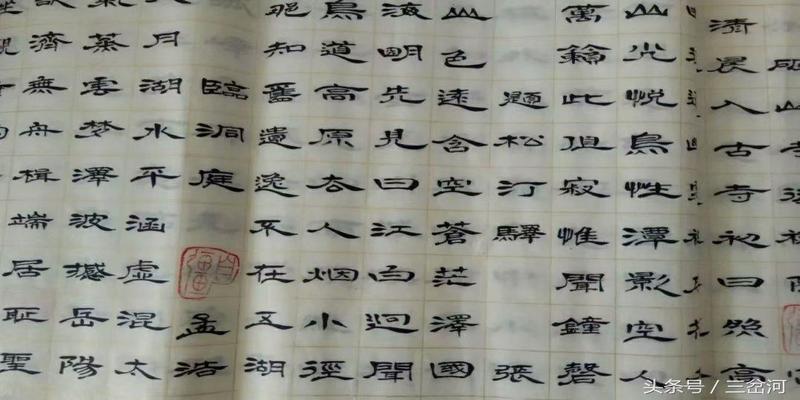 清晨入古寺初日照高
山光悅鳥性潭影空人
萬籟此俱寂惟聞鐘磬
題松汀驛 張
山色遠含空蒼茫澤國
海明先見日江白迥聞
鳥道高原去人烟小徑
那知舊遺逸不在五湖
臨洞庭 孟浩
月湖水平涵虛混太
氣蒸雲夢澤波撼岳陽
欲濟無舟楫端居恥聖
头条号 / 三岔河